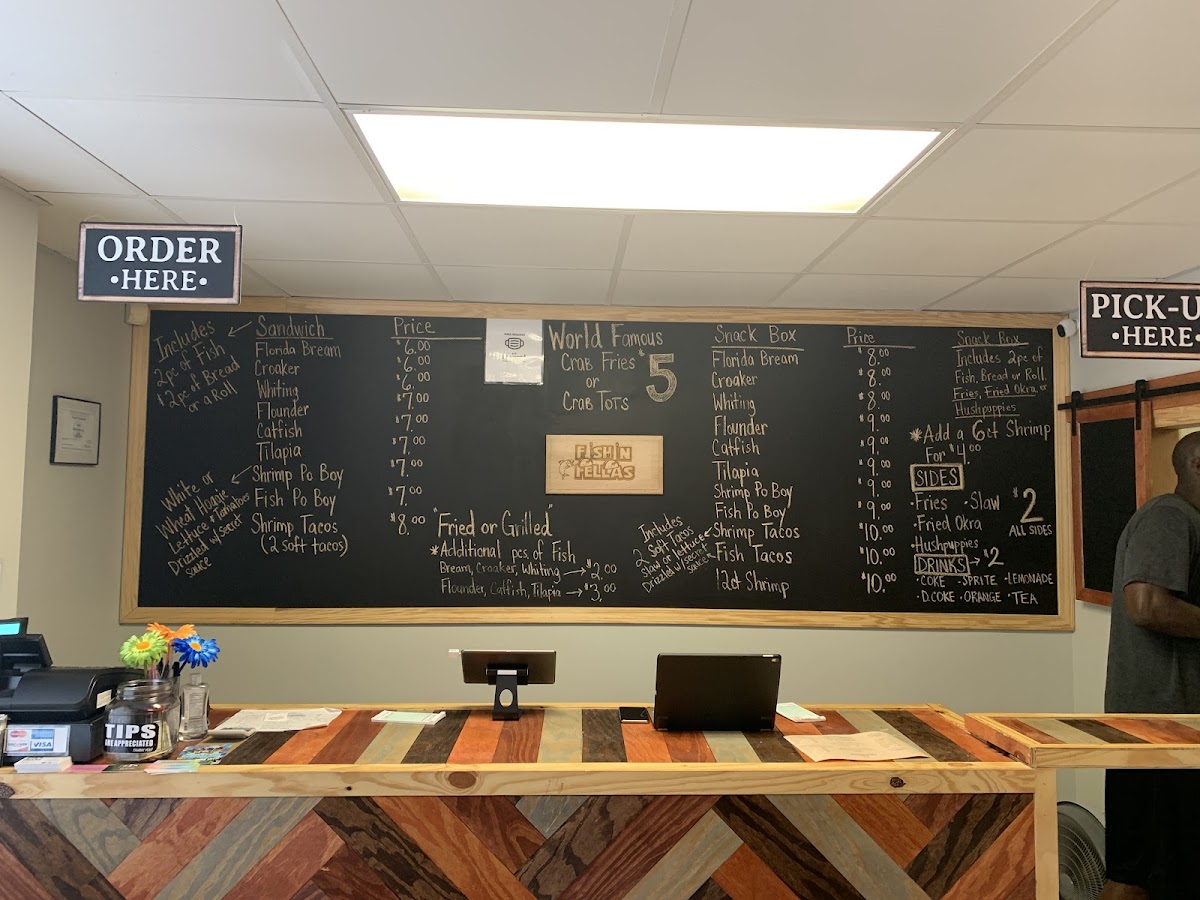 ORDER
•HERE•
PICK-U
•HERE•
Includes
2pc of Fish
+ 2pc of Bread
or a Roll
Sandwich Price
Florida Bream $6.00
Croaker 6.00
Whiting 6.00
Flounder $7.00
Catfish 7.00
Tilapia 7.00
Shrimp Po Boy 7.00
Fish Po Boy $7.00
Shrimp Tacos $8.00
(2 soft tacos)
White or
Wheat Hoagie
Lettuce + Tomatoes
Drizzled w/ Secret
sauce
World Famous
Crab Fries $5
or
Crab Tots
FISH'N
FELLAS
"Fried or Grilled"
*Additional pcs. of Fish
Bream, Croaker, Whiting → $2.00
Flounder, Catfish, Tilapia → $3.00
Snack Box Price
Florida Bream $8.00
Croaker $8.00
Whiting $8.00
Flounder $9.00
Catfish $9.00
Tilapia $9.00
Shrimp Po Boy $9.00
Fish Po Boy $9.00
Shrimp Tacos $10.00
Fish Tacos $10.00
12ct Shrimp $10.00
Includes
2 Soft Tacos
Slaw or lettuce
Drizzled w/ secret
sauce
Snack Box
Includes 2pc of
Fish, Bread or Roll
Fries, Fried Okra, or
Hushpuppies
*Add a 6ct Shrimp
For $4.00
SIDES
•Fries •Slaw
•Fried Okra
•Hushpuppies
$2
ALL SIDES
DRINKS → $2
•COKE •SPRITE •LEMONADE
•D.COKE •ORANGE •TEA
TIPS
ARE APPRECIATED
VISA